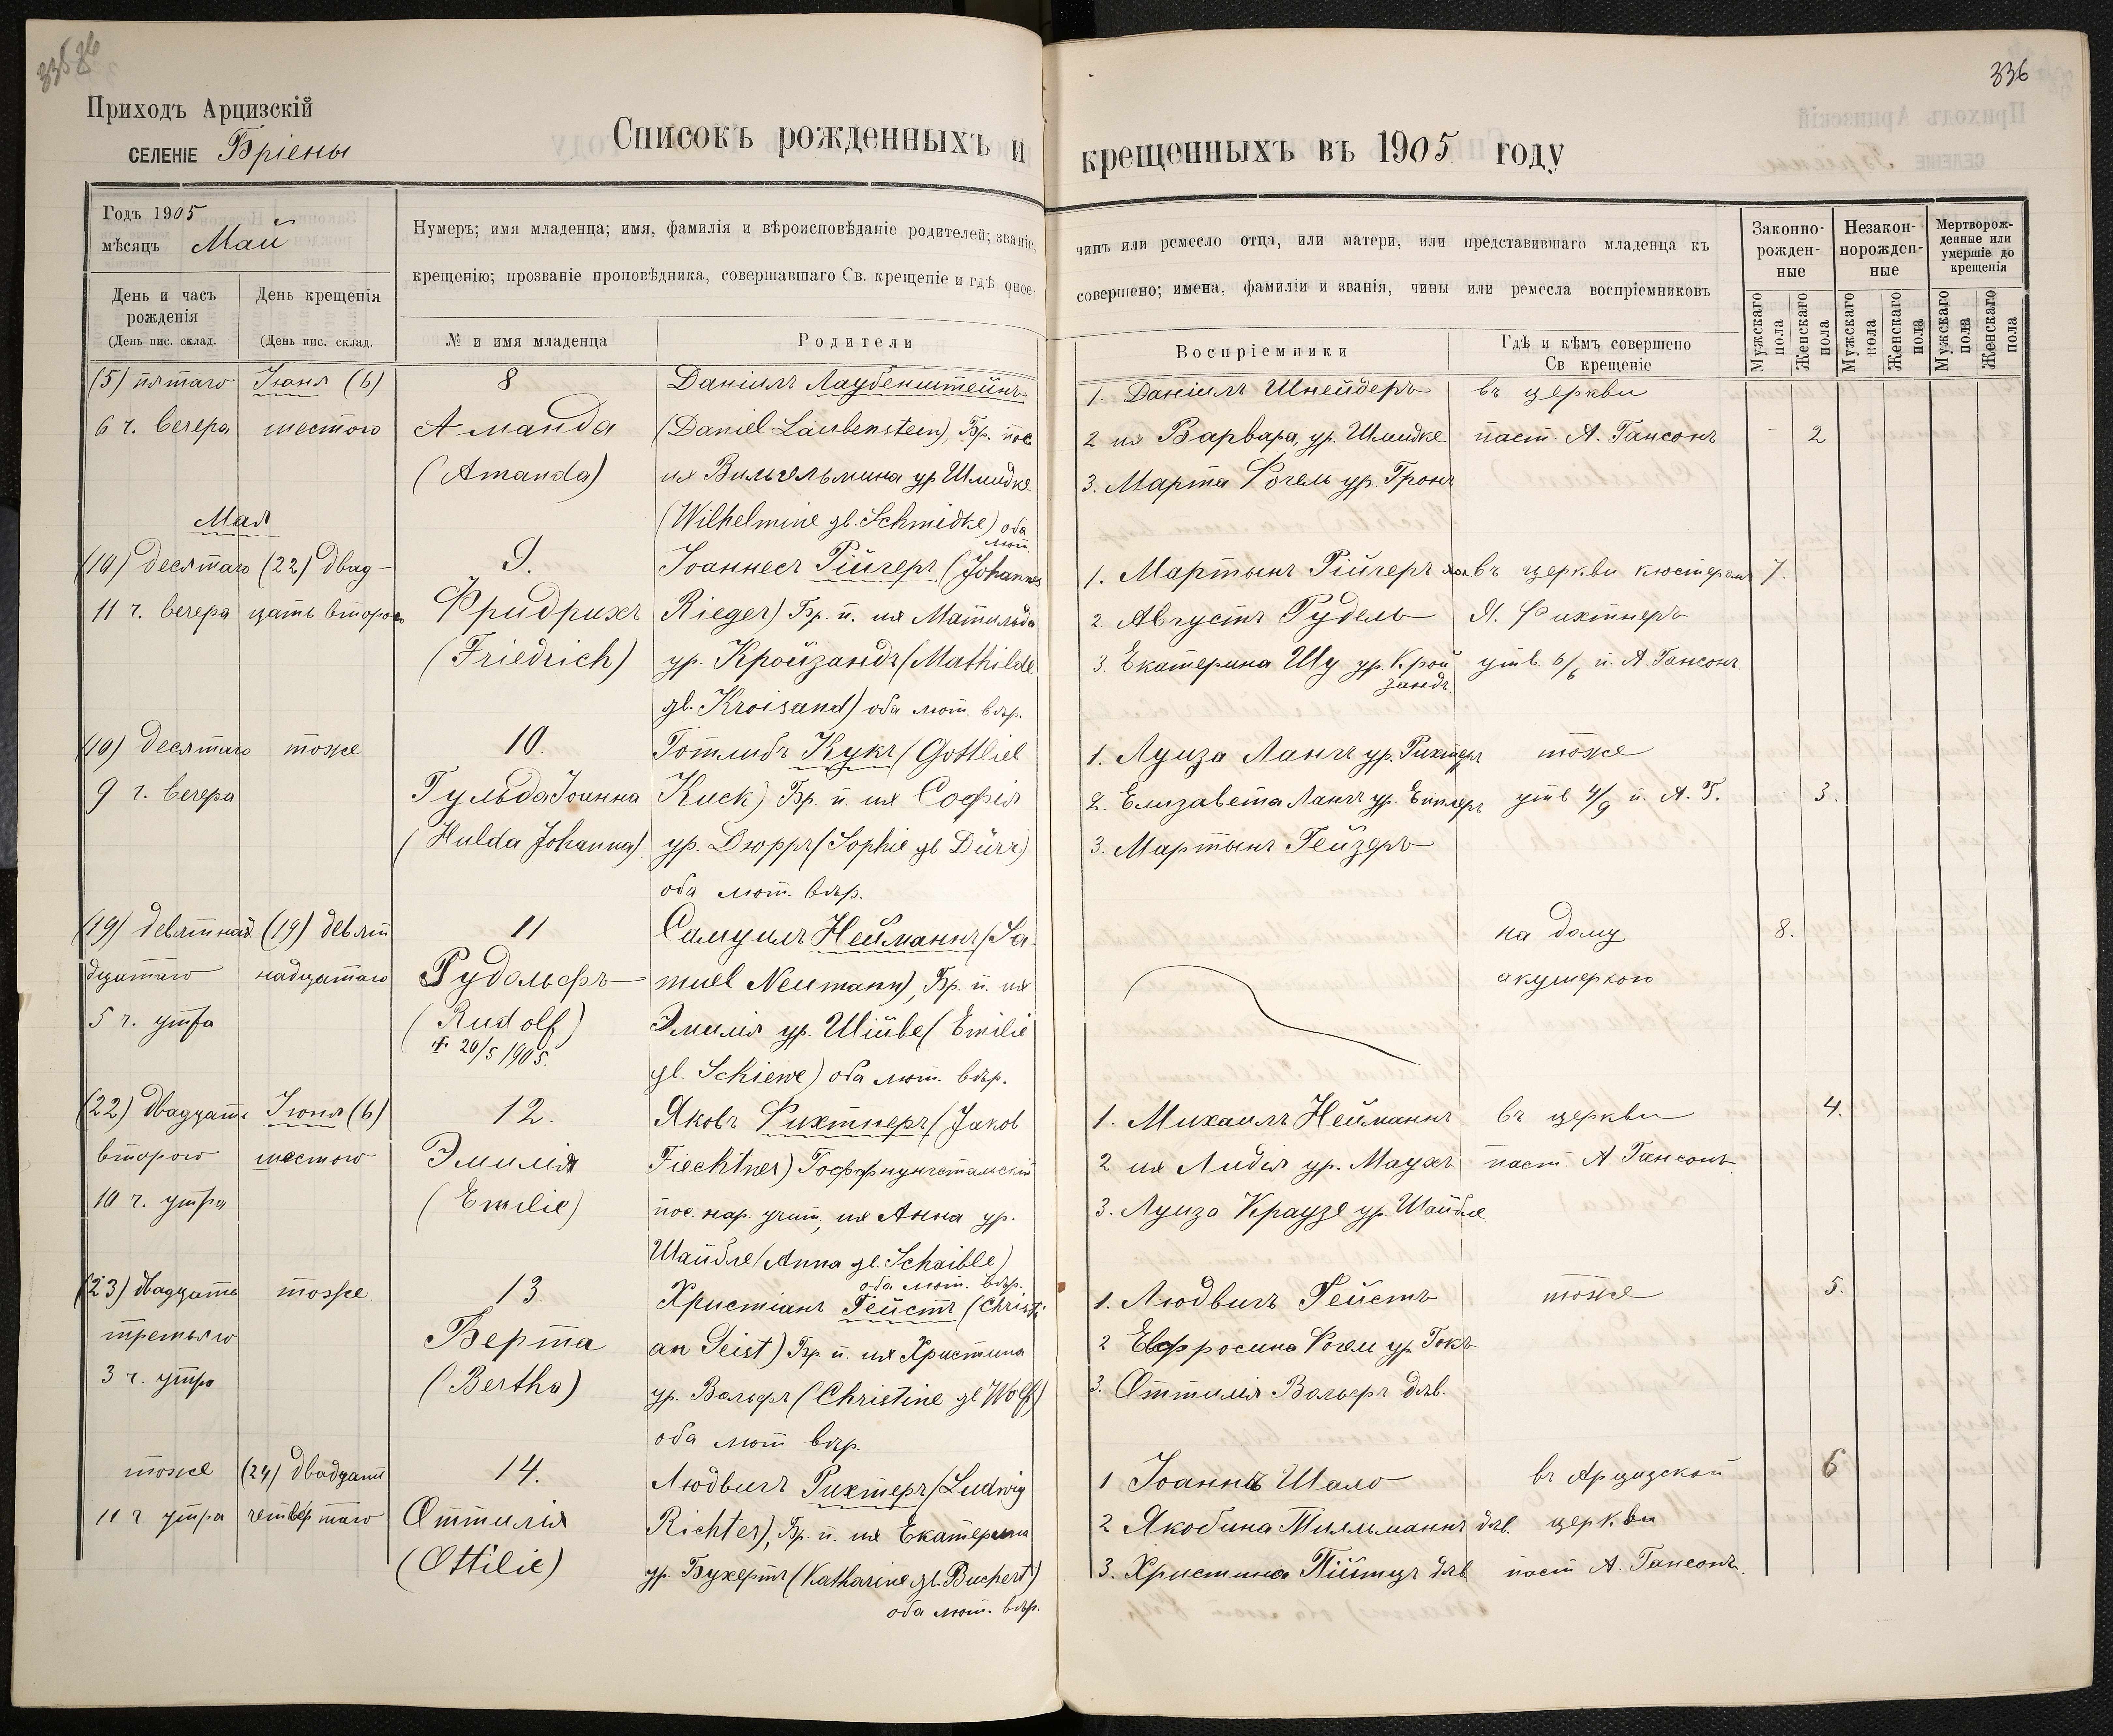 336
Приходъ Арцизскій
СЕЛЕНІЕ Бріены
Списокъ рожденныхъ и
Годъ 1905
мѣсяцъ Май
Нумеръ; имя младенца; имя, фамилія и вѣроисповѣданіе родителей; званіе,
крещенію; прозваніе проповѣдника, совершавшаго Св. крещеніе и гдѣ оное
День и часъ рожденія
(День пис. склад.
День крещенія
(День пис. склад.
№ и имя младенца
Родители
(5) пятаго Іюня (6) 8 Даніилъ Лаубенштейнъ
6 ч. вечера шестого Аманда (Daniel Laubenstein), Бр. пос
(Amanda) ия Вильгельмина ур Шмидке
(Wilhelmine gb. Schmidke) оба
Мая
лют.
(10) десятаго (22) двад- 9. Іоаннесъ Рійгеръ (Johannes
11 ч. вечера цать второго Фридрихъ Rieger) Бр. п. ия Матильда
(Friedrich) ур. Кройзандъ (Mathilde
gb. Kroisand) оба лют. вѣр.
(10) десятаго тоже 10. Готлибъ Кукъ (Gottlieb
9 ч. вечера Гульда Іоанна Kuck) Бр. п. ия Софія
(Hulda Johanna) ур. Дюрръ (Sophie gb Dürr)
оба лют. вѣр.
(19) девятнад- (19) девят 11 Самуилъ Нейманнъ (Sa-
дцатаго надцатаго Рудольфъ muel Neumann), Бр. п. ия
5 ч. утра (Rudolf) Эмилія ур. Шійве (Emilie
† 20/5 1905.
gb. Schiewe) оба лют. вѣр.
(22) двадцать Іюня (6) 12. Яковъ Фихтнеръ (Jakob
второго шестого Эмилія Fiechtner) Гоффнунгстальскій
10 ч. утра (Emilie) пос. нар. учит., ия Анна ур.
Шайбле (Anna gb. Schaible)
оба лют. вѣр.
(23) двадцать тоже 13. Христіанъ Гейстъ (Christi-
третьяго Берта an Geist) Бр. п. ия Христина
3 ч. утра (Bertha) ур. Вольфъ (Christine gb Wolf)
оба лют вѣр.
тоже (24) двадцать 14. Людвигъ Рихтеръ (Ludwig
11 ч утра четвертаго Оттилія Richter), Бр. п. ия Екатерина
(Ottilie) ур. Бухертъ (Katharine gb. Buchert)
оба лют. вѣр.
336
крещенныхъ въ 1905 году
чинъ или ремесло отца, или матери, или представившаго младенца къ
совершено; имена, фамиліи и званія, чины или ремесла воспріемниковъ
Законно-рожден-ные
Незакон-норожден-ные
Мертворож-денные или умершіе до крещенія
Воспріемники
Гдѣ и кѣмъ совершено Св крещеніе
Мужскаго пола
Женскаго пола
Мужскаго пола
Женскаго пола
Мужскаго пола
Женскаго пола
1. Даніилъ Шнейдеръ въ церкви
2 ия Варвара, ур. Шмидке паст. А. Гансонъ - 2
3. Марта Фогель ур. Гронъ
1. Мартынъ Рійгеръ въ церкви кюстеромъ 7.
2. Августъ Рудель Я. Фихтнеръ
3. Екатерина Шу ур. Крой утв. 6/6 п. А. Гансонъ.
зандъ.
1. Луиза Лангъ ур. Рихтеръ тоже
2. Елизавета Лангъ ур. Епплеръ утв 4/9 п. А. Г. - 3.
3. Мартынъ Гейзеръ
на дому 8.
акушеркою
1. Михаилъ Нейманнъ въ церкви 4.
2 ия Лидія ур. Маухъ паст. А. Гансонъ.
3. Луиза Краузе ур. Шайбле.
1. Людвигъ Гейстъ тоже 5.
2 Евфросина Фогель ур. Гокъ
3. Оттилія Вольфъ дѣв.
1 Іоаннъ Шало въ Арцизской 6
2 Якобина Тилльманнъ дѣв. церкви
3. Христина Пійтцъ дѣв. паст А. Гансонъ.